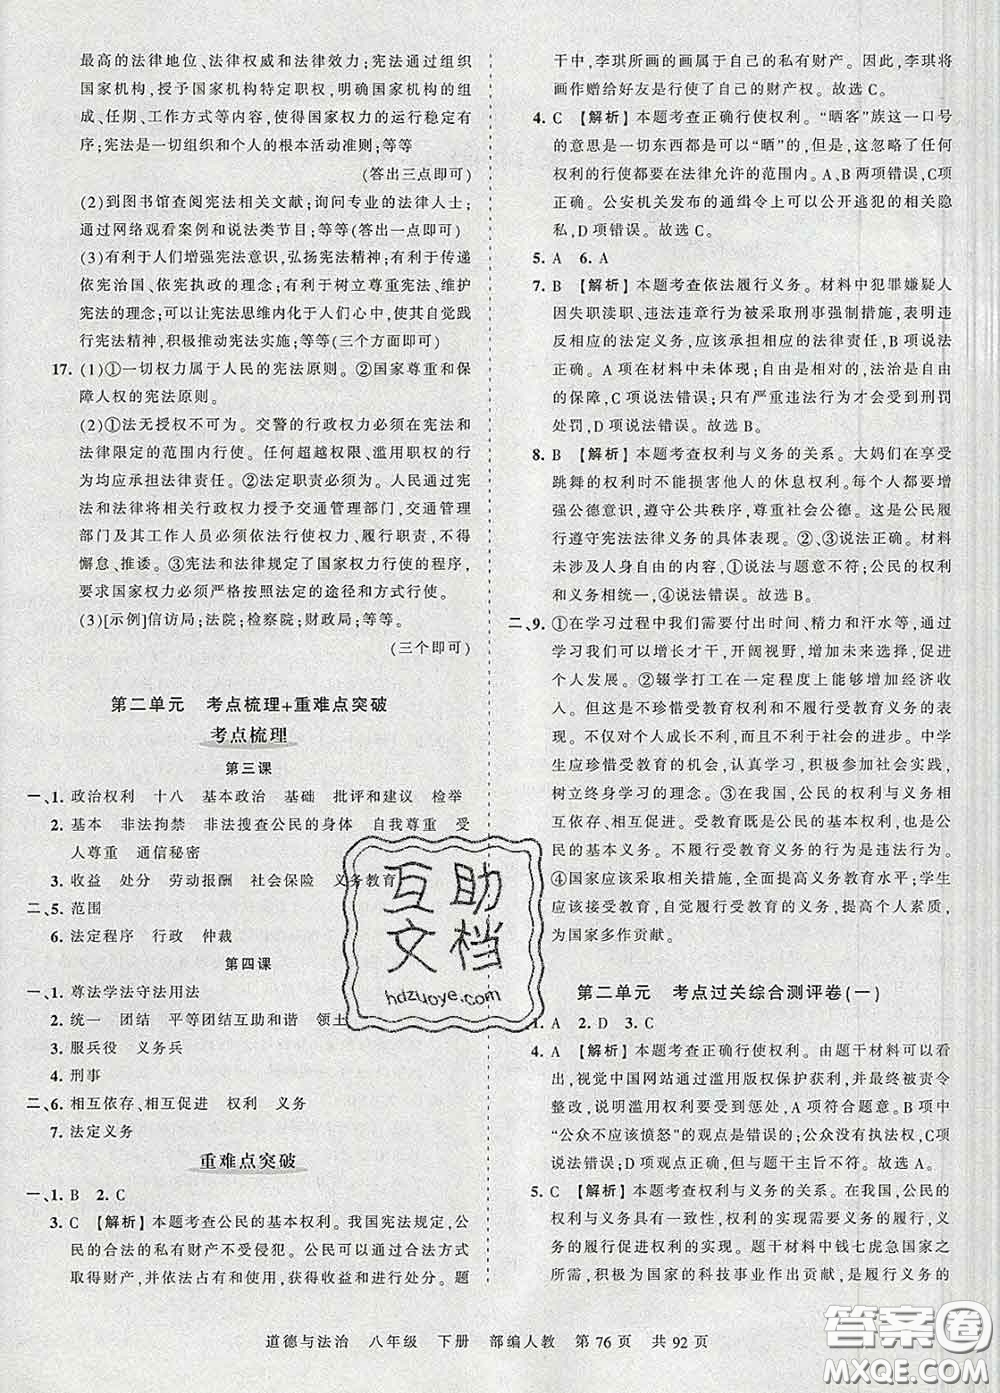 最高的法律地位、法律权威和法律效力;宪法通过组织
国家机构,授予国家机构特定职权,明确国家机构的组
成、任期、工作方式等内容,使得国家权力的运行稳定有
序;宪法是一切组织和个人的根本活动准则;等等
(答出三点即可)
(2)到图书馆查阅宪法相关文献;询问专业的法律人士;
通过网络观看案例和说法类节目;等等(答出一点即可)
(3)有利于人们增强宪法意识,弘扬宪法精神;有利于传递
依宪治国、依宪执政的理念;有利于树立尊重宪法、维护
宪法的理念;可以让宪法思维内化于人们心中,使其自觉践
行宪法精神,积极推动宪法实施;等等(三个方面即可)
17. (1)①一切权力属于人民的宪法原则。②国家尊重和保
障人权的宪法原则。
(2)①法无授权不可为。交警的行政权力必须在宪法和
法律限定的范围内行使。任何超越权限、滥用职权的行
为均应承担法律责任。②法定职责必须为。人民通过宪
法和法律将相关行政权力授予交通管理部门,交通管理
部门及其工作人员必须依法行使权力、履行职责,不得
懈怠、推诿。③宪法和法律规定了国家权力行使的程序,
要求国家权力必须严格按照法定的途径和方式行使。
(3)[示例]信访局;法院;检察院;财政局;等等。
(三个即可)
第二单元 考点梳理+重难点突破
考点梳理
第三课
一、1. 政治权利 十八 基本政治 基础 批评和建议 检举
2. 基本 非法拘禁 非法搜查公民的身体 自我尊重 受
人尊重 通信秘密
3. 收益 处分 劳动报酬 社会保险 义务教育
二、5. 范围
6. 法定程序 行政 仲裁
第四课
一、1. 尊法学法守法用法
2. 统一 团结 平等团结互助和谐 领土
3. 服兵役 义务兵
4. 刑事
二、6. 相互依存、相互促进 权利 义务
7. 法定义务
重难点突破
一、1. B 2. C
3. C 【解析】本题考查公民的基本权利。我国宪法规定,公
民的合法的私有财产不受侵犯。公民可以通过合法方式
取得财产,并依法占有和使用、获得收益和进行处分。题
干中,李琪所画的画属于自己的私有财产。因此,李琪将
画作赠给好友是行使了自己的财产权。故选C。
4. C 【解析】本题考查正确行使权利。“晒客”族这一口号
的意思是一切东西都是可以“晒”的,这忽略了任何公民
权利的行使都应在法律允许的范围内。A、B两项错误,C项
正确。公安机关发布的通缉令上可以公开逃犯的相关隐
私,D项错误。故选C。
5. A 6. A
7. B 【解析】本题考查依法履行义务。材料中犯罪嫌疑人
因失职渎职、违法违章行为被采取刑事强制措施,表明违
反相应的法定义务,应承担相应的法律责任,法治是自由
的保障,C项说法错误;A项在材料中未体现;只有严重违法行为才会受到刑罚
处罚,D项说法错误。故选B。
8. B 【解析】本题考查权利与义务的关系。大妈们在享受
跳舞的权利时不能损害他人的休息权利。她们应该增强
公德意识,遵守公共秩序,尊重社会公德。这是公民履
行遵守宪法法律义务的具体表现。②、③说法正确。材料
未涉及人身自由的内容,①说法与题意不符;公民的权利
和义务相统一,④说法错误。故选B。
二、9. ①在学习过程中我们需要付出时间、精力和汗水等,通过
学习我们可以增长才干,开阔视野,增加未来选择的机会,促
使个人发展。②辍学打工在一定程度上能够增加经济收
入。但这是不珍惜受教育权利和不履行受教育义务的表
现。不利于个人成长,不利于社会的进步。中学
生应珍惜受教育的机会,认真学习,积极参加社会实践,
树立终身学习的理念。③在我国,公民的权利和义务相
互依存、相互促进。受教育既是公民的基本权利,又是公
民的基本义务。不履行受教育义务的行为是违法行为。
④国家应该采取相关措施,全面提高义务教育水平;学生
应该接受教育,自觉履行受教育的义务,提高个人素质,
为国家多作贡献。
第二单元 考点过关综合测评卷(一)
一、1. A 2. D 3. C
4. A 【解析】本题考查正确行使权利。由题干材料可以看
出,视觉中国网站通过滥用版权保护获利,并最终被责令
整改,说明滥用权利要受到惩处,A项符合题意。B项中
“公众不应该愤怒”的观点是错误的;公众没有执法权,C项
说法错误;D项观点正确,但与题干主旨不符。故选A。
5. C 【解析】本题考查权利与义务的关系。在我国,公民的
权利与义务具有一致性,权利的实现需要义务的履行,义
务的履行促进权利的实现。题干材料中钱七虎急国家之
所需,积极为国家的科技事业作出贡献,是履行义务的
互助文档
hdzuoye.com
道德与法治 八年级 下册 部编人教 第76页 共92页
答案圈
MXQE.COM